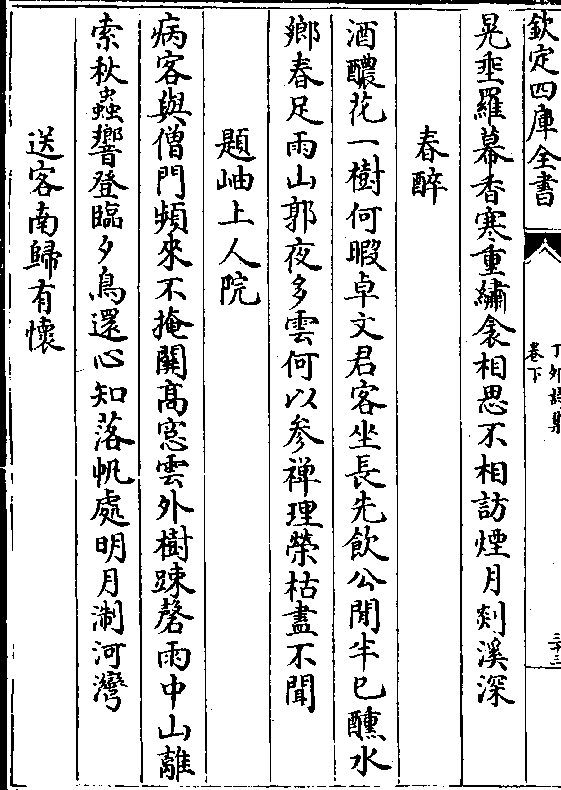 欽定四庫全書
丁卯詩集
卷下
三十三
晃埀羅幕香寒重繡衾相思不相訪煙月剡溪深
春醉
酒醲花一樹何暇卓文君客坐長先飲公閒半已醺水
鄉春足雨山郭夜多雲何以参禅理榮枯盡不聞
題岫上人院
病客與僧門頻來不掩關高窓雲外樹踈磬雨中山離
索秋蟲響登臨夕鳥還心知落帆處明月淛河灣
送客南歸有懷